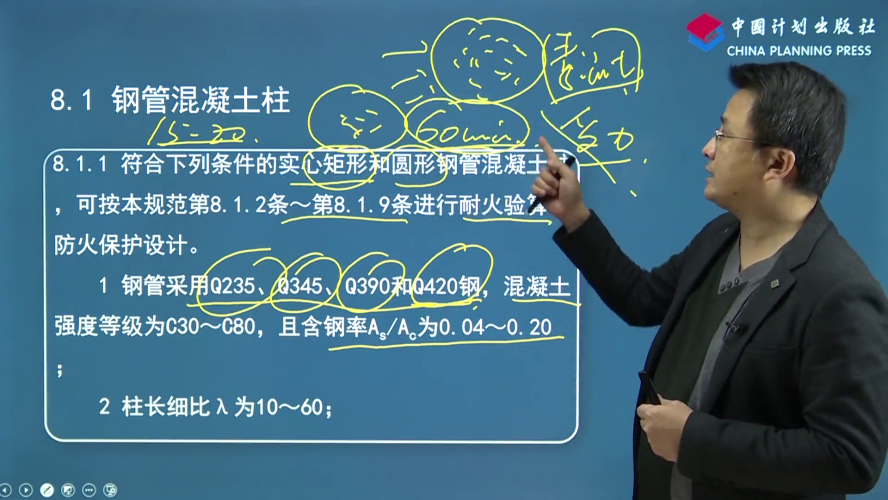 中国计划出版社
CHINA PLANNING PRESS
8.1 钢管混凝土柱
15-20
60min
8.1.1 符合下列条件的实心矩形和圆形钢管混凝土
，可按本规范第8.1.2条～第8.1.9条进行耐火验算
防火保护设计。
1 钢管采用Q235、Q345、Q390和Q420钢，混凝土
强度等级为C30～C80，且含钢率As/Ac为0.04～0.20
；
2 柱长细比λ为10～60；